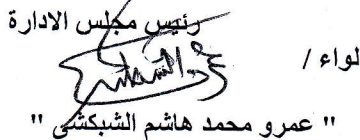 رئيس مجلس الادارة
لواء /
" عمرو محمد هاشم الشبكشي "